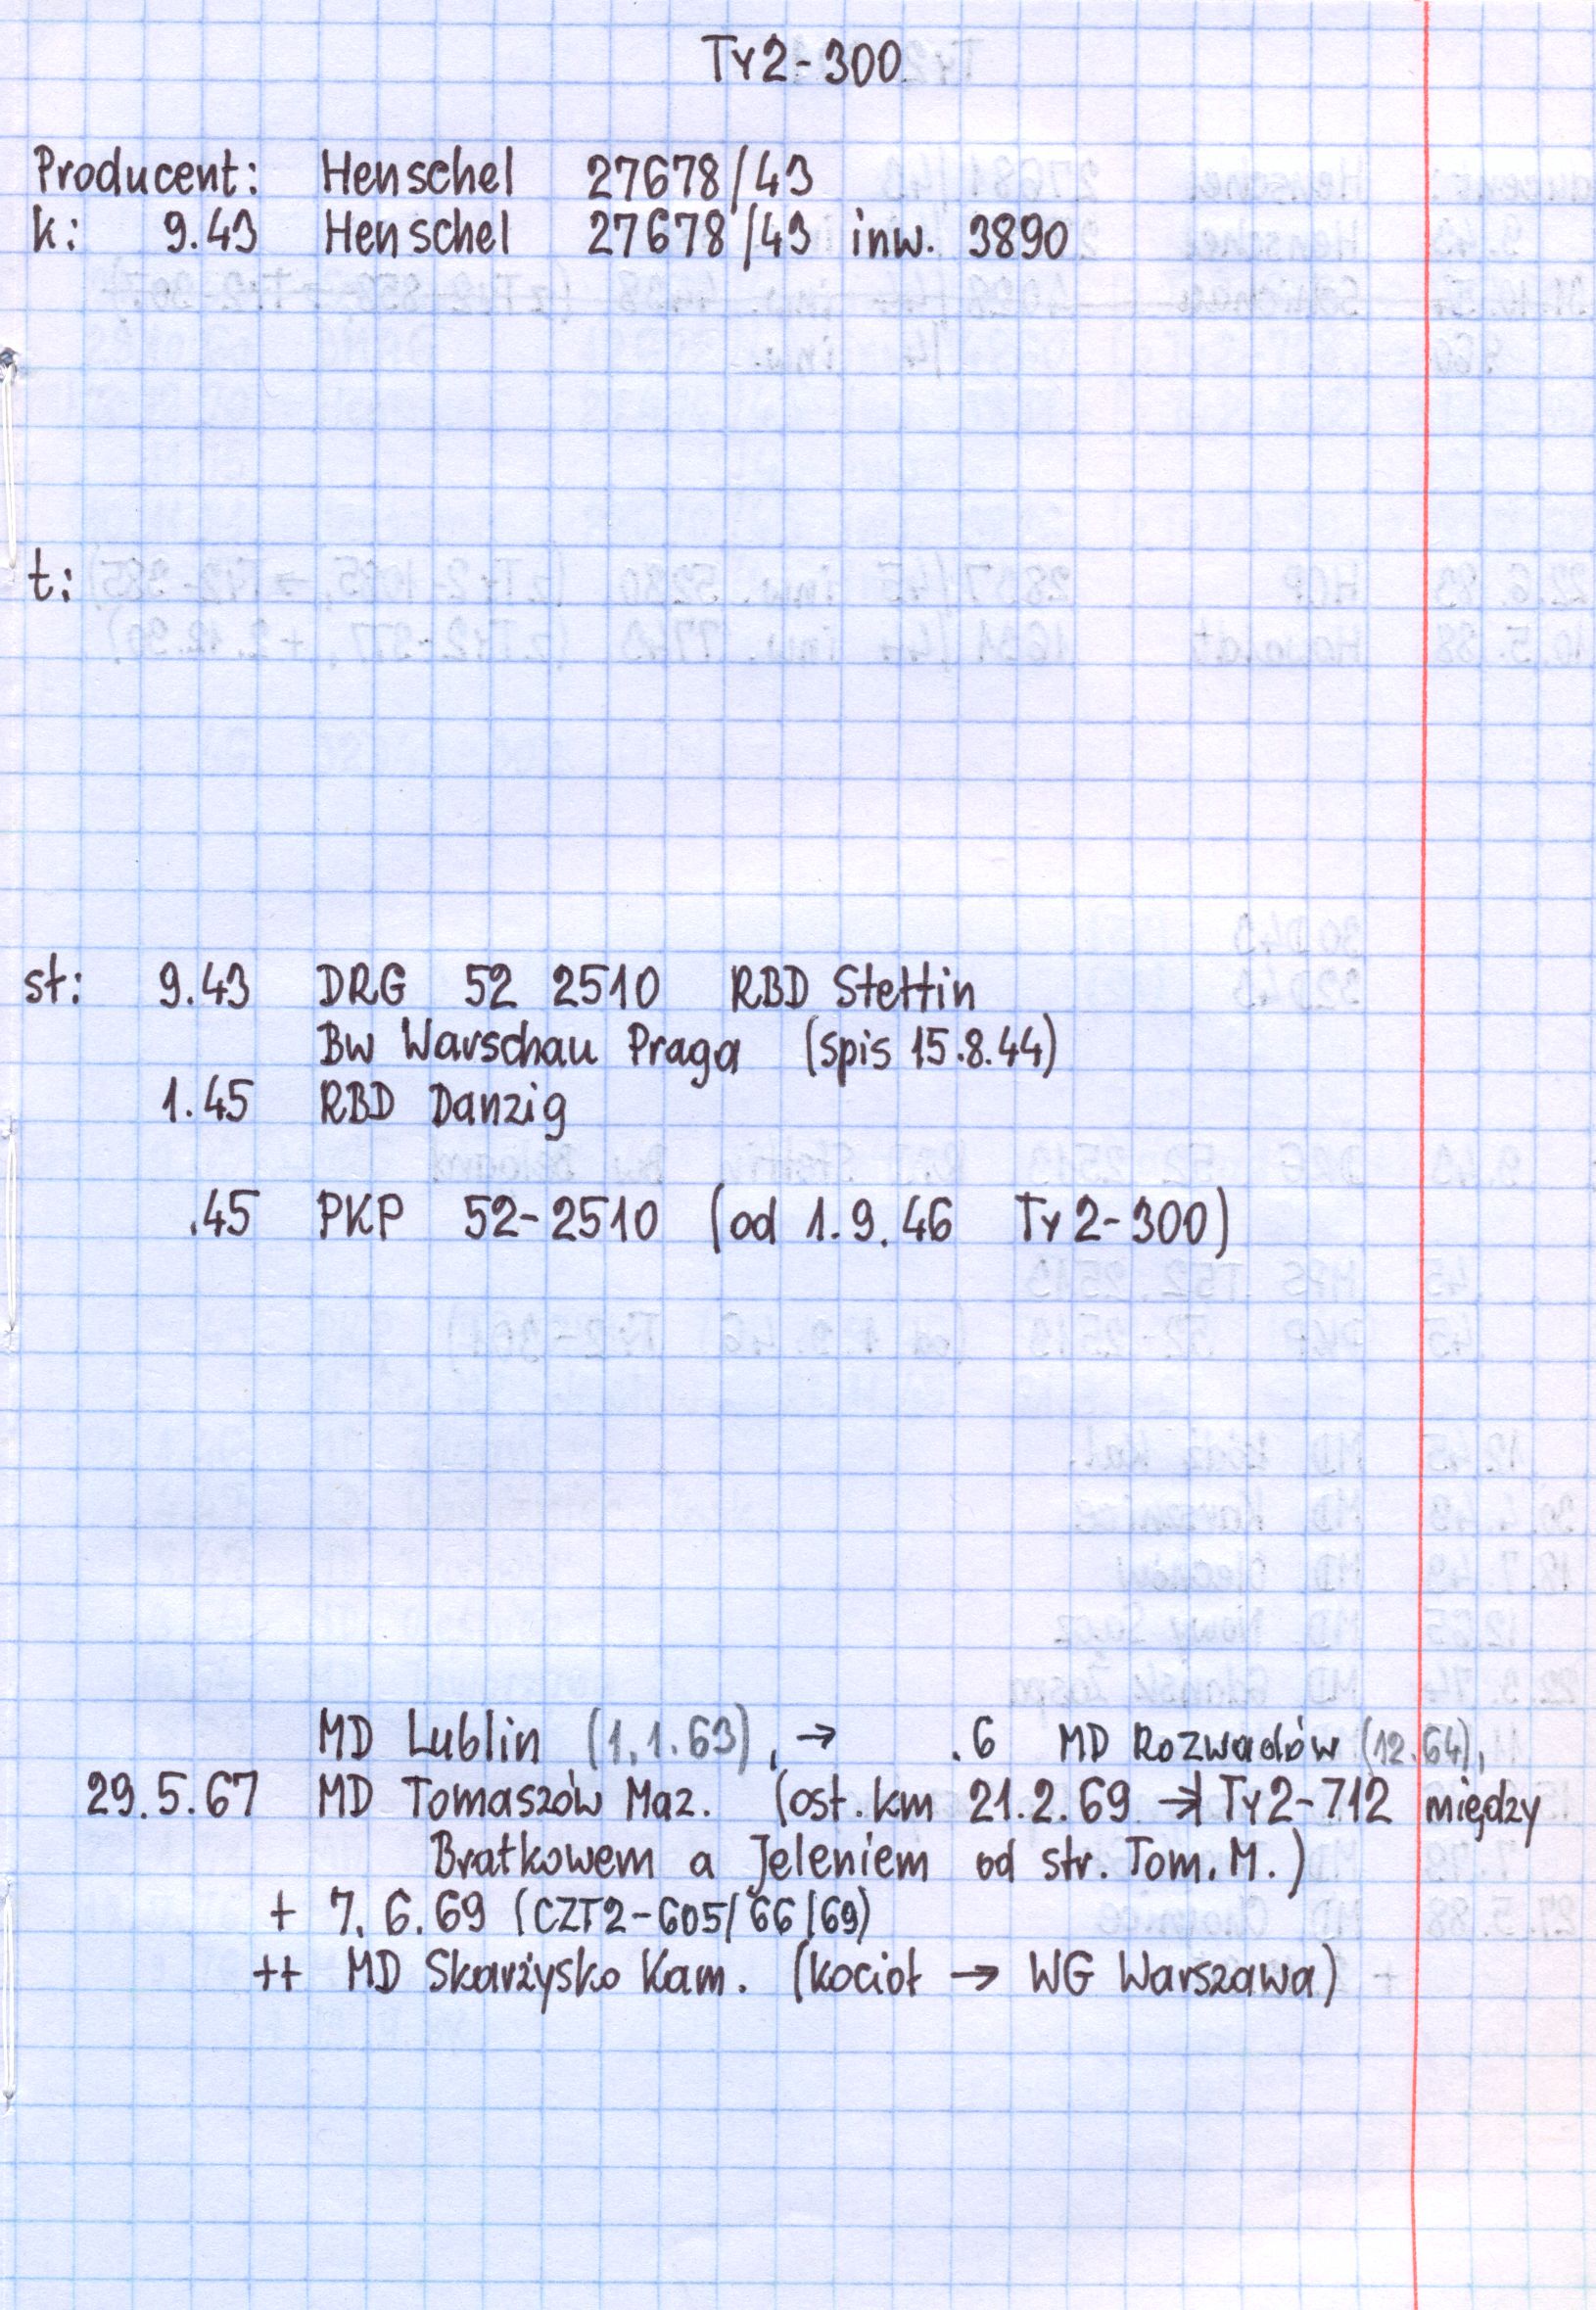 Ty2-300
Producent: Henschel 27678/43
k: 9.43 Henschel 27678/43 inw. 3890
t:
st: 9.43 DRG 52 2510 RBD Stettin
Bw Warschau Praga (spis 15.8.44)
1.45 RBD Danzig
.45 PKP 52-2510 (od 1.9.46 Ty2-300)
MD Lublin (1.1.63), → .6 MD Rozwadów (12.64),
29.5.67 MD Tomaszów Maz. (ost. km 21.2.69 →| Ty2-712 między
Bratkowem a Jeleniem od str. Tom. M.)
+ 7.6.69 (CZT2-605/66/69)
++ MD Skarżysko Kam. (kocioł → WG Warszawa)